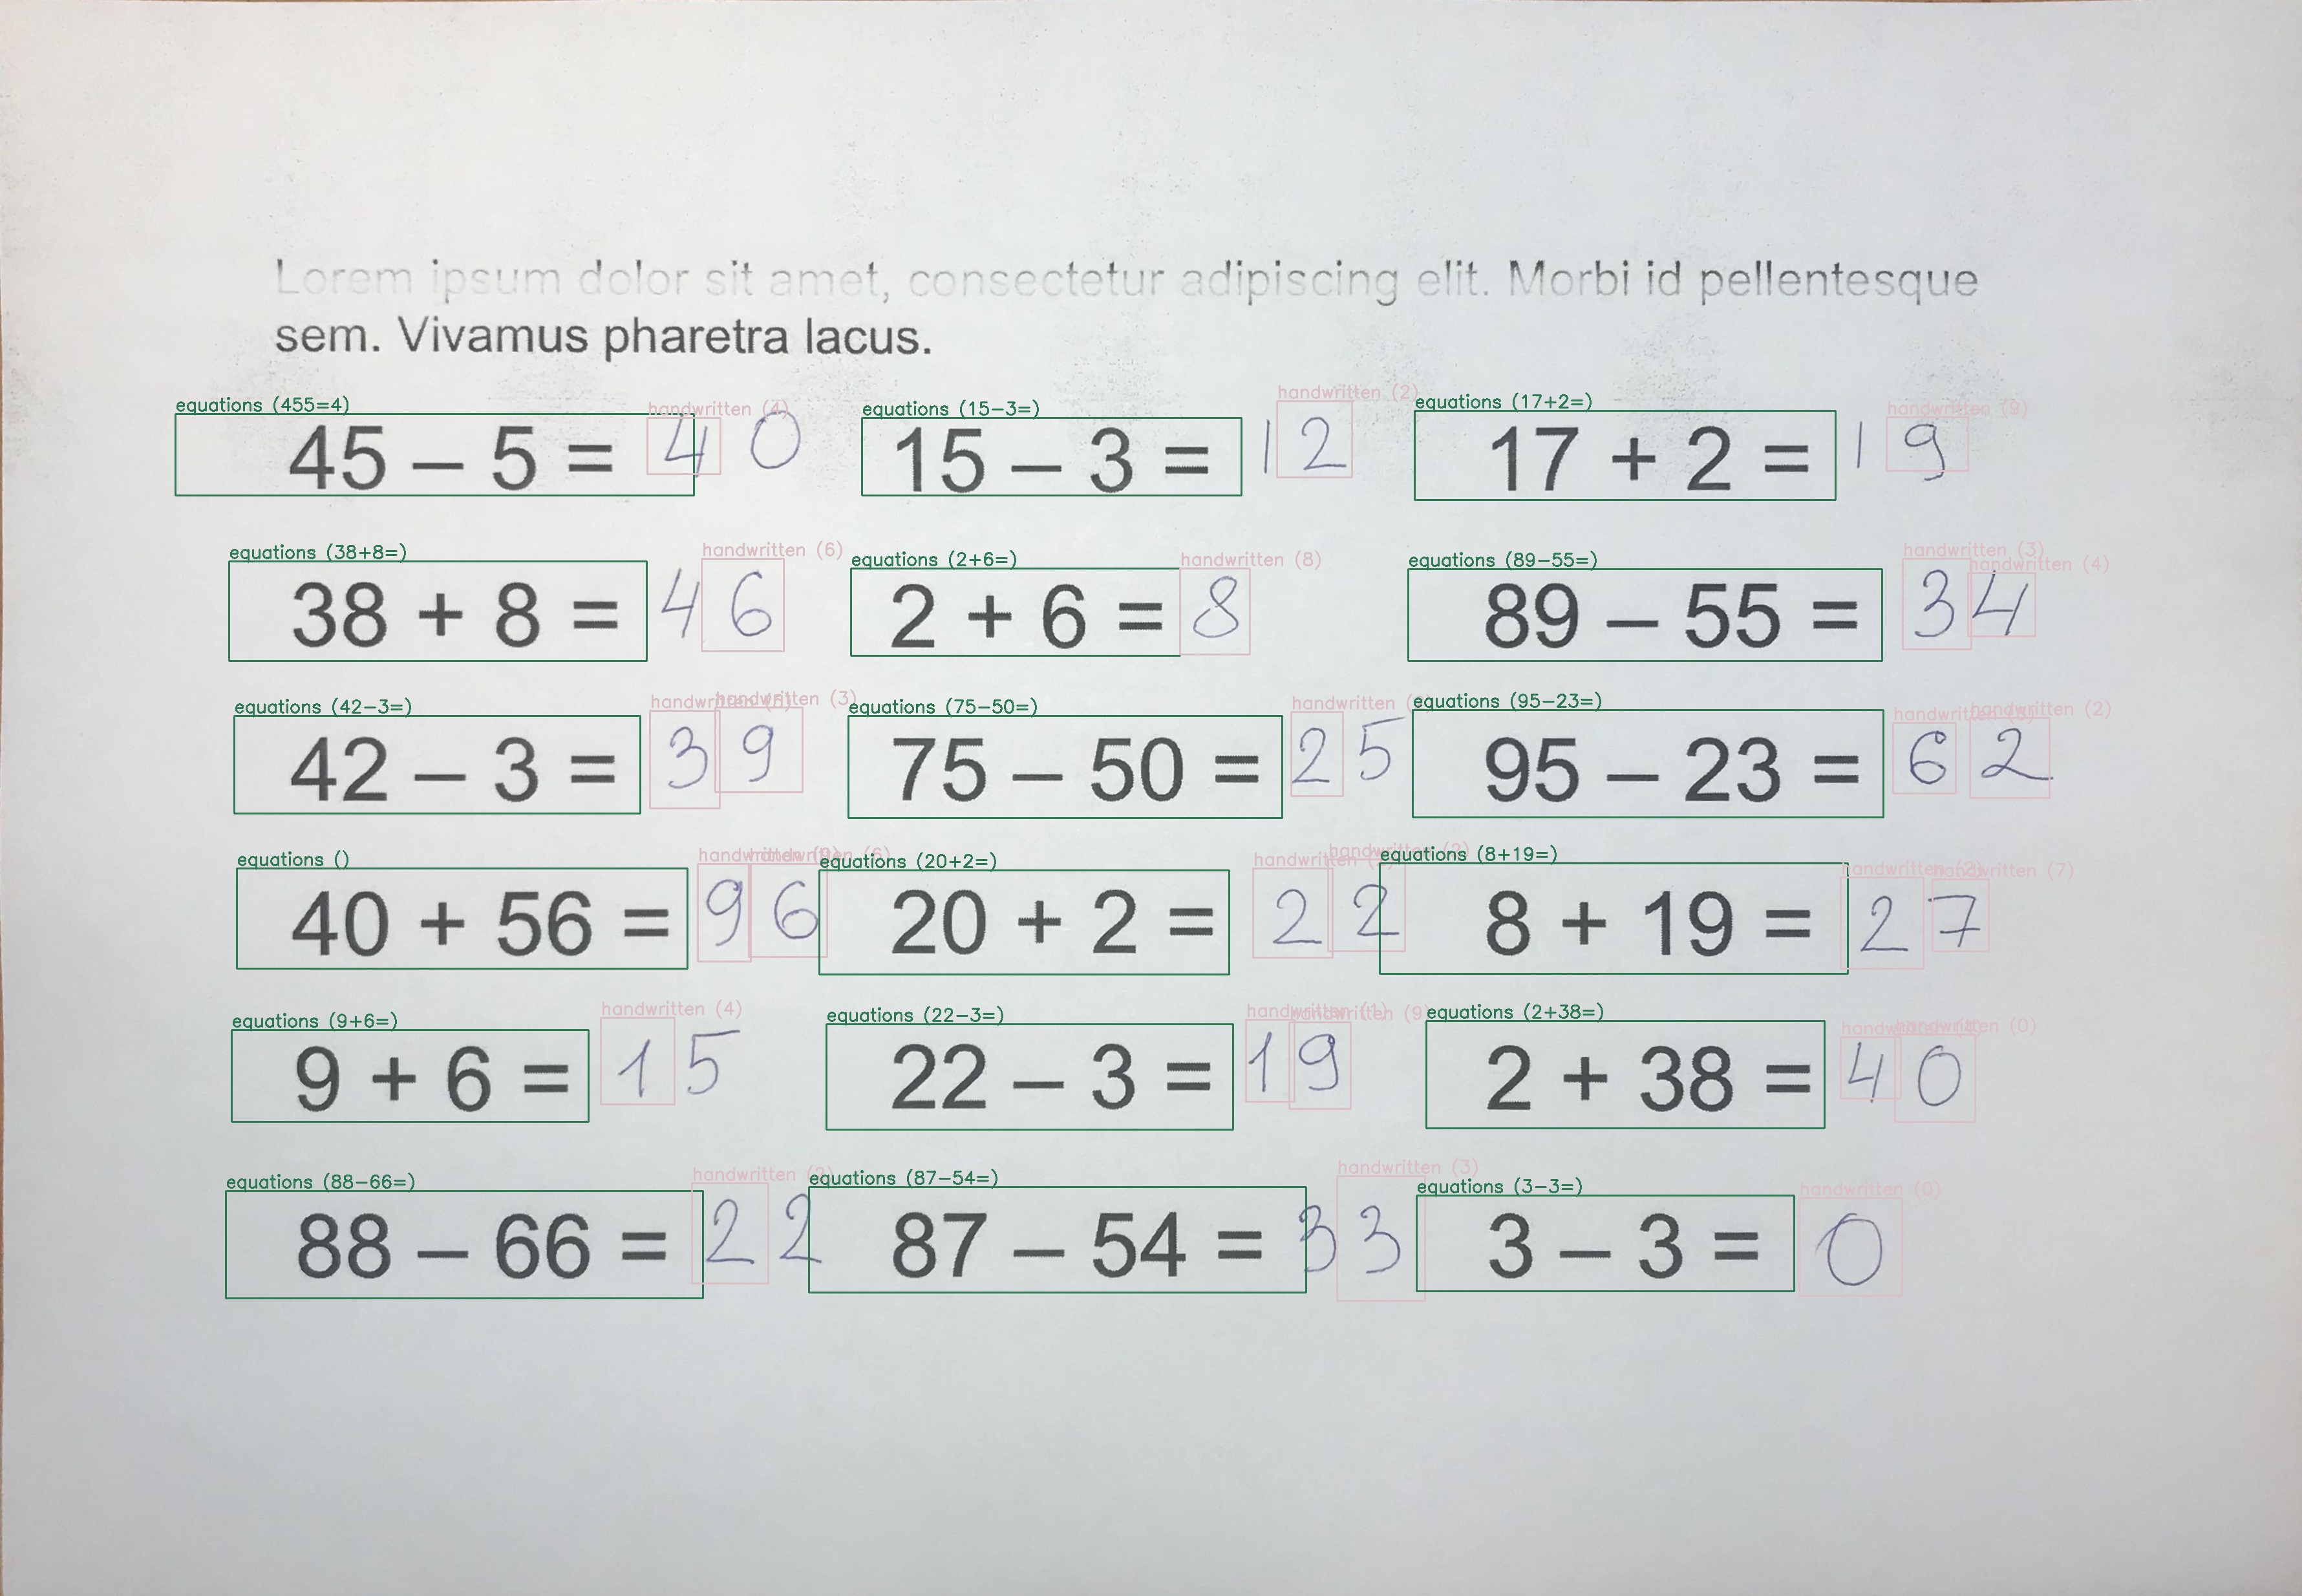 Lorem ipsum dolor sit amet, consectetur adipiscing elit. Morbi id pellentesque
sem. Vivamus pharetra lacus.
equations (455=4) handwritten (4) equations (15-3=) handwritten (2) equations (17+2=) handwritten (9)
45 – 5 = 40 15 – 3 = 12 17 + 2 = 19
equations (38+8=) handwritten (6) equations (2+6=) handwritten (8) equations (89-55=) handwritten (3) handwritten (4)
38 + 8 = 46 2 + 6 = 8 89 – 55 = 34
equations (42-3=) handwritten handwritten (3) equations (75-50=) handwritten equations (95-23=) handwritten handwritten (2)
42 – 3 = 39 75 – 50 = 25 95 – 23 = 62
equations () handwritten handwritten (6) equations (20+2=) handwritten handwritten (2) equations (8+19=) handwritten (2) handwritten (7)
40 + 56 = 96 20 + 2 = 22 8 + 19 = 27
equations (9+6=) handwritten (4) equations (22-3=) handwritten (1) handwritten (9) equations (2+38=) handwritten handwritten (0)
9 + 6 = 15 22 – 3 = 19 2 + 38 = 40
equations (88-66=) handwritten (2) equations (87-54=) handwritten (3) equations (3-3=) handwritten (0)
88 – 66 = 22 87 – 54 = 33 3 – 3 = 0